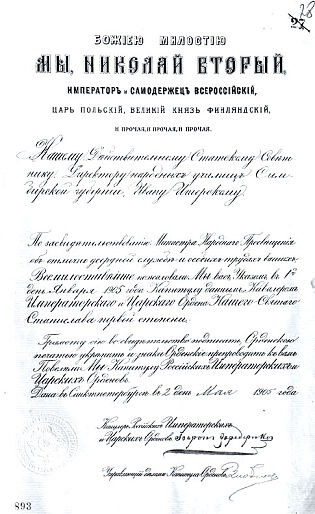 28
БОЖІЕЮ МИЛОСТІЮ
МЫ, НИКОЛАЙ ВТОРЫЙ,
ИМПЕРАТОРЪ и САМОДЕРЖЕЦЪ ВСЕРОССІЙСКІЙ,
ЦАРЬ ПОЛЬСКІЙ, ВЕЛИКІЙ КНЯЗЬ ФИНЛЯНДСКІЙ,
И ПРОЧАЯ, И ПРОЧАЯ, И ПРОЧАЯ.
Нашему Дѣйствительному Статскому Совѣт-
нику, Директору народныхъ училищъ Сим-
бирской губерніи, Ивану
По засвидѣтельствованію Министра Народнаго Просвѣщенія
объ отлично усердной службѣ и особыхъ трудахъ вашихъ,
Всемилостивѣйше пожаловали Мы васъ, Указомъ, въ 1й
день Января 1905 года Капитулу даннымъ, Кавалеромъ
Императорскаго и Царскаго Ордена Нашего Святаго
Станислава первой степени.
Грамоту сію во свидѣтельство подписать, Орденскою
печатью укрѣпить и знаки Орденскіе препроводить къ вамъ
Повелѣли Мы Капитулу Россійскихъ Императорскихъ и
Царскихъ Орденовъ.
Дана въ Санктпетербургѣ въ 2 день Мая 1905 года
Канцлеръ Россійскихъ Императорскихъ
и Царскихъ Орденовъ Баронъ Фредериксъ
Управляющій дѣлами Капитула Орденовъ
893